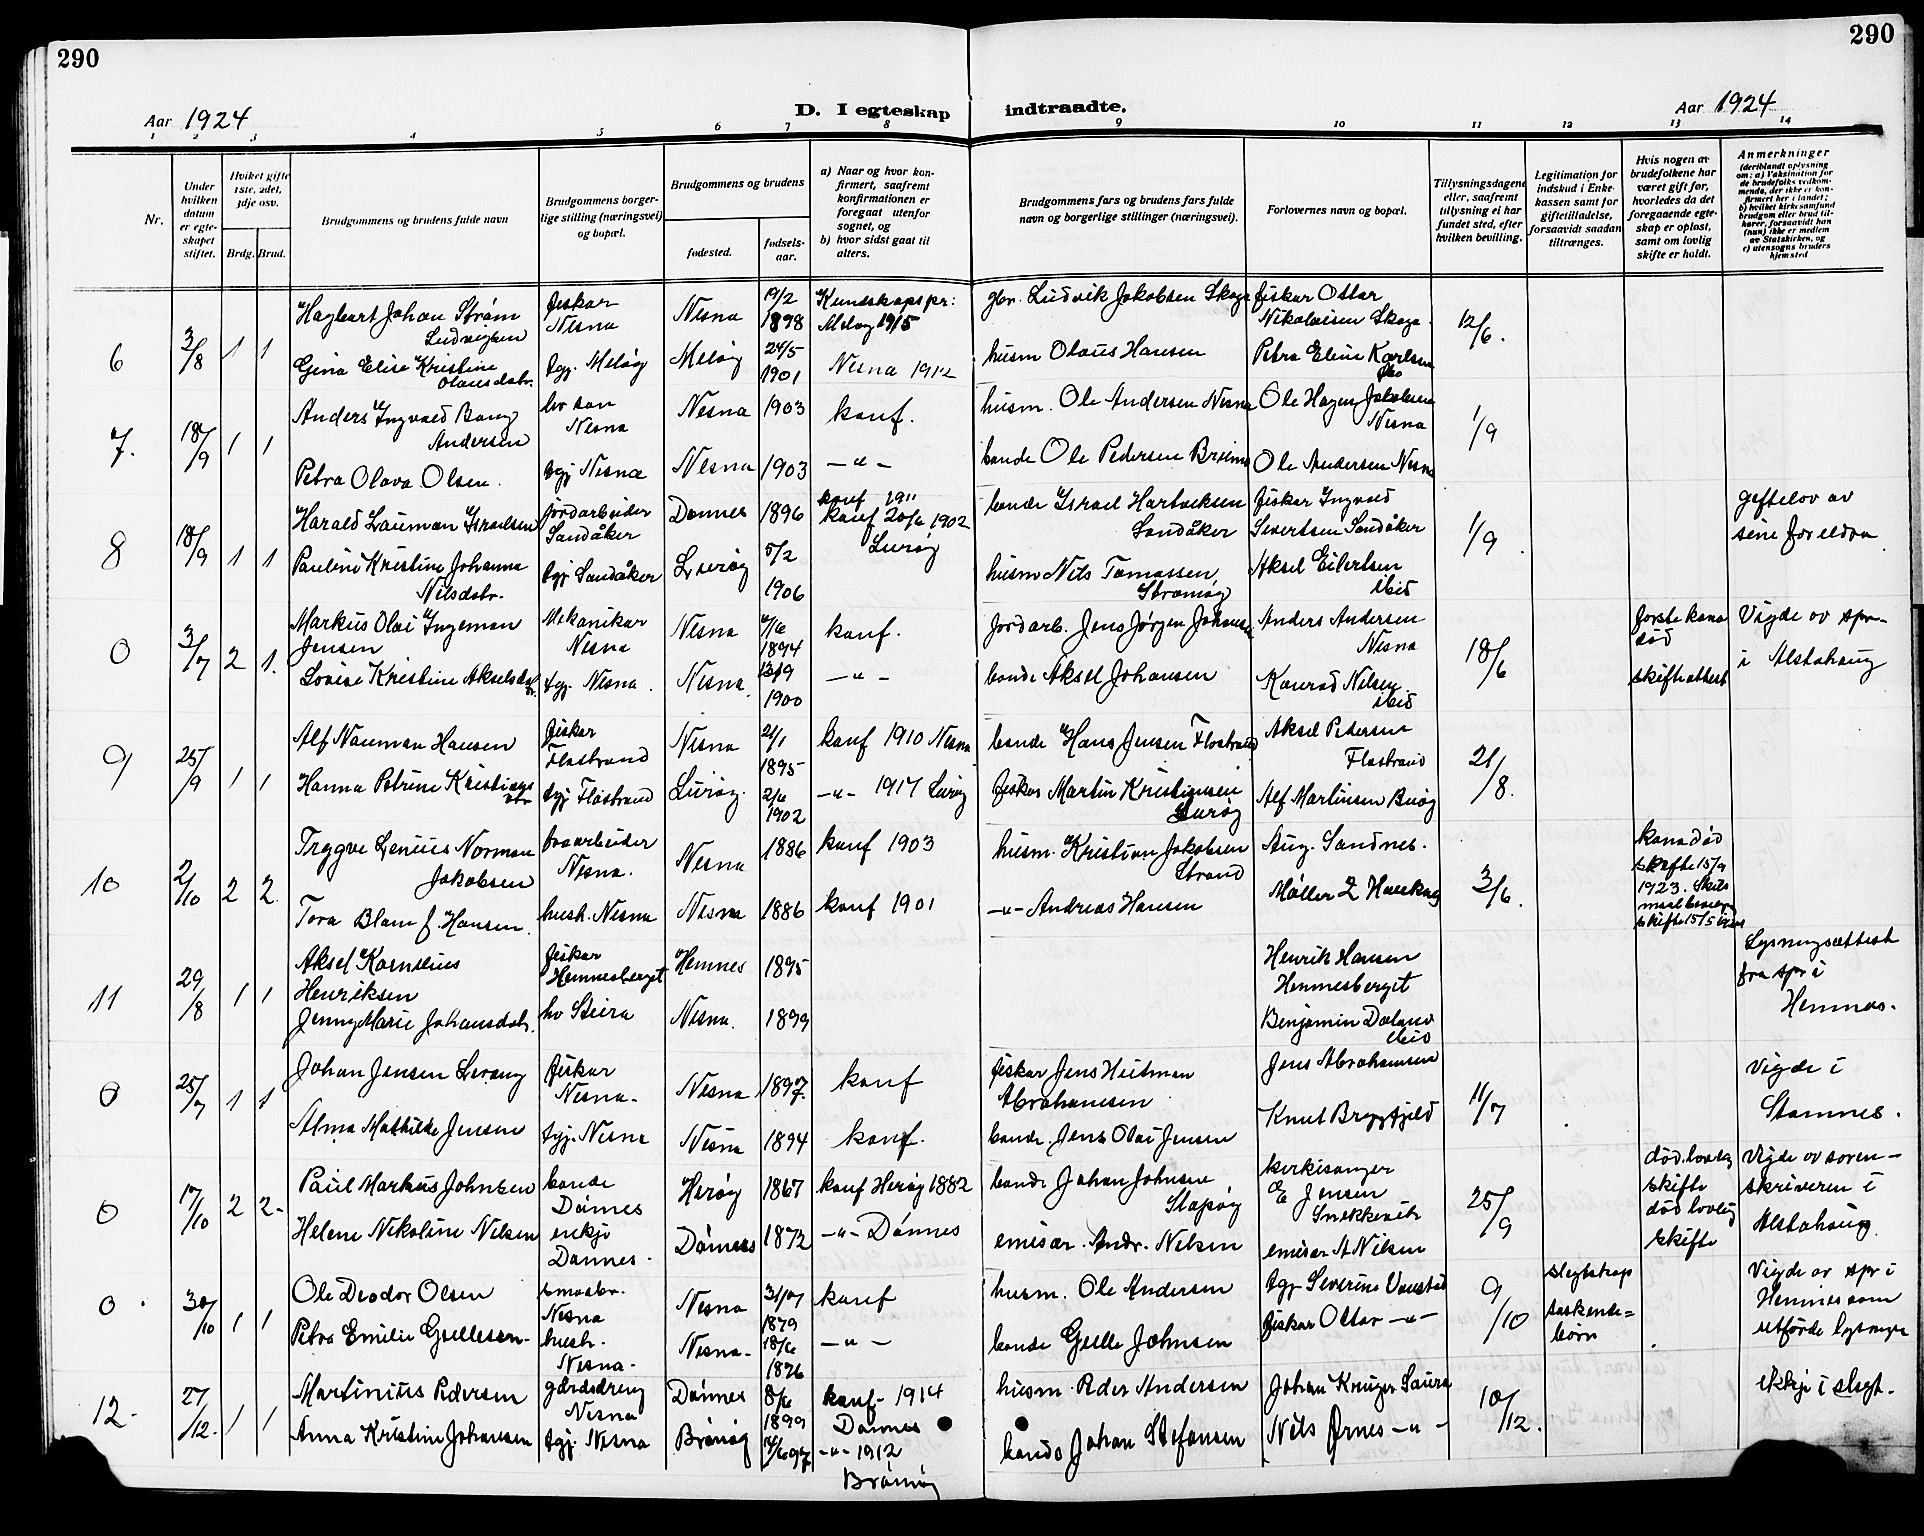 290
290
Aar 1924
D. I egteskap indtraadte.
Aar 1924
1 2 3 4 5 6 7 8 9 10 11 12 13 14
Nr.
Under hvilken datum er egteskapet stiftet.
Hvilket gifte 1ste, 2det, 3dje osv.
Brdg. Brud.
Brudgommens og brudens fulde navn
Brudgommens borgerlige stilling (næringsvei) og bopæl.
Brudgommens og brudens
fødested.
fødselsaar.
a) Naar og hvor konfirmert, saafremt konfirmationen er foregaat utenfor sognet, og
b) hvor sidst gaat til alters.
Brudgommens fars og brudens fars fulde navn og borgerlige stillinger (næringsvei).
Forlovernes navn og bopæl.
Tillysningsdagene eller, saafremt tillysning ei har fundet sted, efter hvilken bevilling.
Legitimation for indskud i Enkekassen samt for giftetilladelse, forsaavidt saadan tiltrænges.
Hvis nogen av brudefolkene har været gift før, hvorledes da det foregaaende egteskap er opløst, samt om lovlig skifte er holdt.
Anmerkninger
(deriblandt oplysning om: a) Vaksination for de brudefolks vedkommende, der ikke er konfirmert her i landet; b) hvilket kirkesamfund brudgom eller brud tilhører, forsaavidt han (hun) ikke er medlem av Statskirken, og c) utensogns bruders hjemsted
6 3/8 1 1
Hagbart Johan Strøm Ludvigsen
fisker Nesna
Nesna 19/2 1898
Kundskapspr: Meløy 1915
Ludvik Jakobsen Skaga
fisker Ottar Nikolaisen Skaga
12/6.
Gina Elise Kristine Olausdatr.
tgj. Meløy
Meløy 24/5 1901
Nesna 1912
husm Olaus Hansen
Petra Eline Karlsen
7. 18/9 1 1
Anders Ingvald Bang Andersen
Nesna
Nesna 1903 konf.
husm. Ole Andersen Nesna
Ole Hagen Jakobsen Nesna
1/9
Petra Olava Olsen.
tgj Nesna
Nesna 1903 -"-
bonde Ole Pedersen
Ole Andersen Nesna
8 18/9 1 1
Harald Lauman Israelsen
jordarbeider Sandåker
Dønnes 1896
konf 1911
konf 20/6 1902 Lurøy
bonde Israel Hartviksen Sandåker
fisker Ingvald Severtsen Sandåker
1/9
giftelov av sine foreldra
Pauline Kristine Johanna Nilsdatr.
tgj Sandåker
Lurøy 5/2 1906
husm Nils Tomassen Strømøy
Aksel Eilertsen ibid
0 3/7 2 1.
Markus Olai Ingeman Jensen
Mekaniker Nesna
Nesna 1894
konf.
Jordarb. Jens Jørgen Johansen
Anders Andersen Nesna
18/6
første kona død
skifteattest
Vigde av spr. i Alstahaug
Lovise Kristine Akselsdatr.
tgj. Nesna.
Nesna 13/9 1900 -"-
bonde Aksel Johansen
Konrad Nilsen ibid
9 25/9 1 1
Alf Nauman Hansen
fisker Flostrand
Nesna 21/1 1895
konf 1910 Nesna
bonde Hans Jensen Flostrand
Aksel Pedersen Flostrand
21/8.
Hanna Petrine Kristiansdtr
tgj Flostrand
Lurøy. 2/6 1902
-"- 1917 Lurøy
fisker Martin Kristiansen Lurøy
Alf Martinsen Buøy
10 2/10 2 2.
Trygve Lenius Norman Jakobsen
Nesna.
Nesna 1886
konf 1903
husm. Kristian Jakobsen Strand
Aug. Sandnes.
3/6.
kona død
skifte 15/9 1923.
skifte 15/5
Tora Blam f. Hansen.
hush. Nesna
Nesna 1886
konf 1901
-"- Andreas Hansen
Møller Z
11 29/8 1 1
Aksel Kornelius Henriksen
fisker Hemnesberget
Hemnes 1895
Henrik Hansen Hemnesberget
Lysningsattest fra spr i Hemnes.
Jenny Marie Johansdatr.
hv Steira
Nesna. 1899
Benjamin Døland ibid
0 25/7 1 1
Johan Jensen Levang
fisker Nesna.
Nesna 1897.
konf
fisker Jens Heitman Abrahamsen
Jens Abrahamsen
11/7
Vigde i Stamnes.
Alma Mathilde Jensen
tgj. Nesna
Nesna 1894
konf.
bonde. Jens Olai Jensen
Knut Bryggfjeld
0 17/10 2 2.
Paul Markus Johnsen
bonde Dønnes
Herøy 1867
konf Herøy 1882
bonde Johan Johnsen Stapøy
kirkesanger E Jensen
25/9
død. lovlig skifte
død lovlig skifte
Vigde av sorenskriveren i Alstahaug
Helene Nikoline Nilsen
enkje Dønnes.
Dønnes 1872
-"- Dønnes
emisær. Andr. Nilsen
emisær A Nilsen
0 30/10 1 1
Ole Deodor Olsen
smaabr. Nesna
Nesna 31/7 1879
konf
husm. Ole Andersen
tgj Severine
9/10
slegtskap søskendebørn
Vigde av spr i Hemnes som utførde lysninga
Petra Emilie Gullesen
hush. Nesna.
Nesna. 18/6 1876
-"-
bonde Gulle Johnsen
fisker Ottar -"-
12. 27/12. 1 1
Martinius Pedersen
gardsdreng Nesna
Dønnes 8/6 1899
konf. 1914 Dønnes
husm. Peder Andersen
Johan Kruger Saura
10/12.
ikkje i slegt.
Anna Kristine Johansen
tgj. Nesna
Brønøy
-"- 1912 Brønnøy
bonde Johan Stefansen
Nils Ørnes -"-